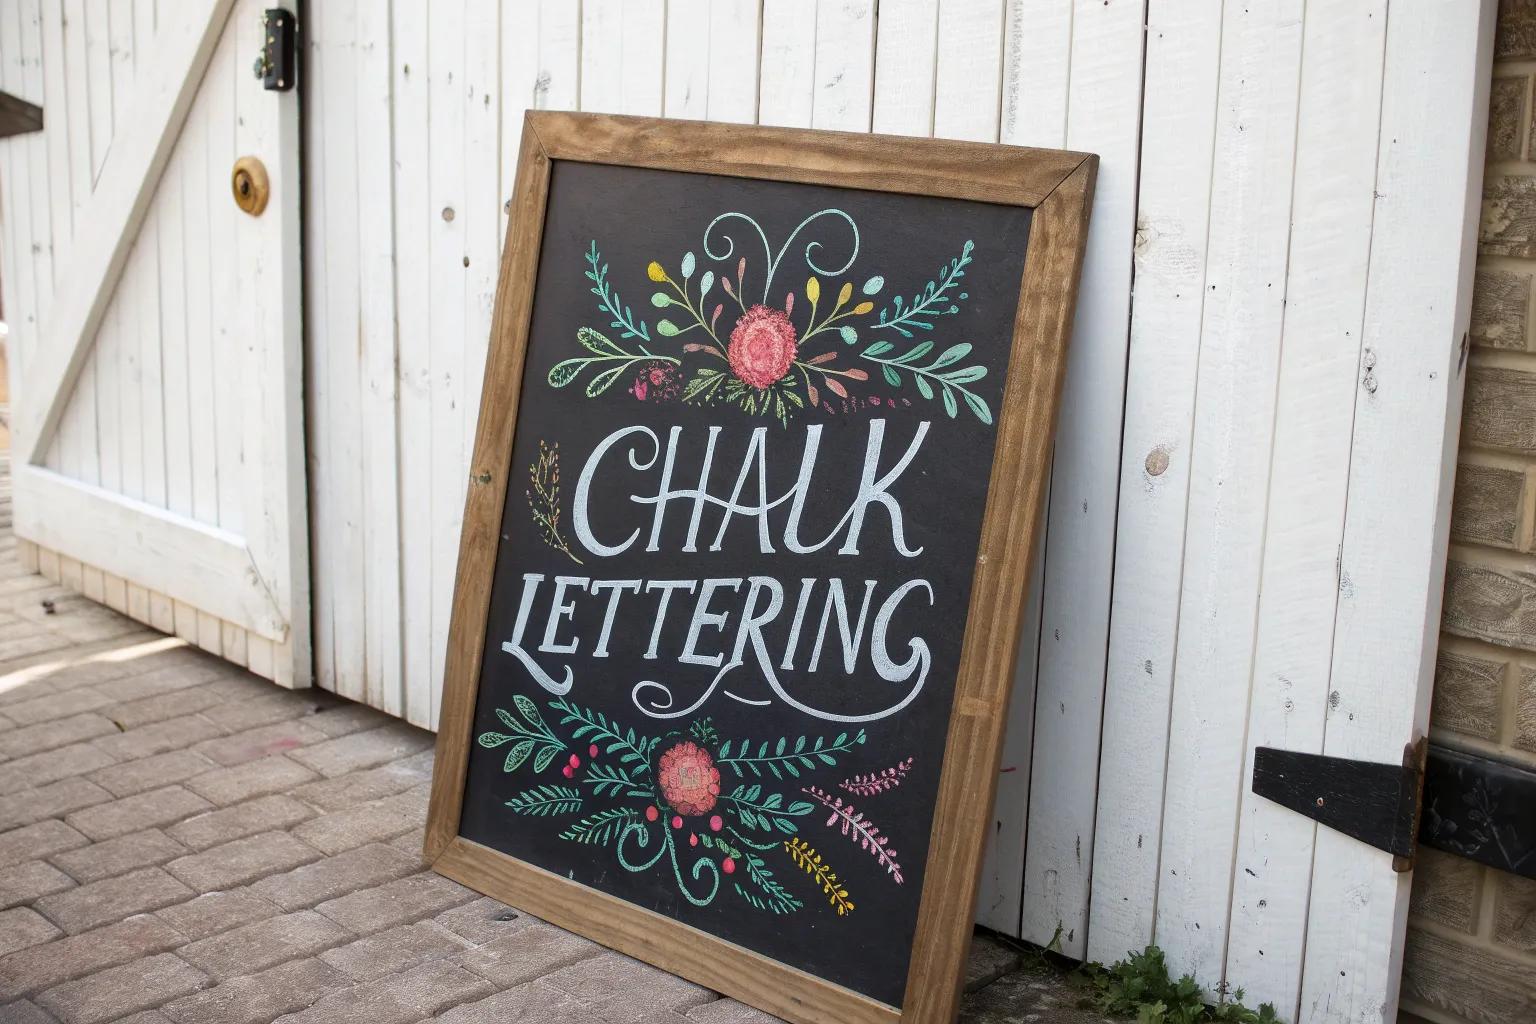 CHALK
LETTERING